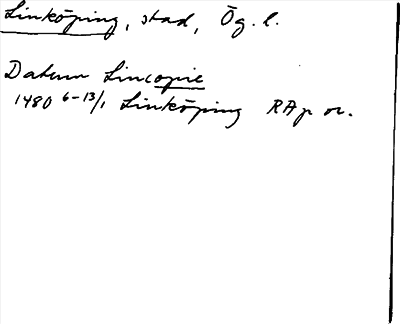 Linköping, stad, Ög. l.
Datum Lincopie
1480 6-13/1 Linköping RA p or.